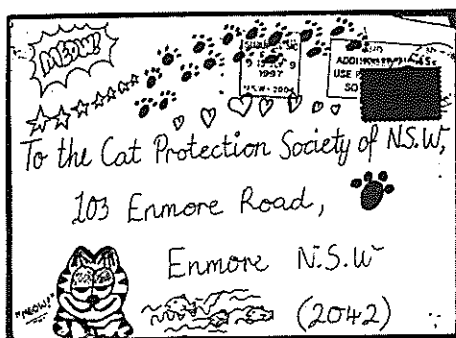 MEOW!
1997
N.S.W.
USE
To the Cat Protection Society of N.S.W,
103 Enmore Road,
Enmore N.S.W
"MEOW!"
(2042)